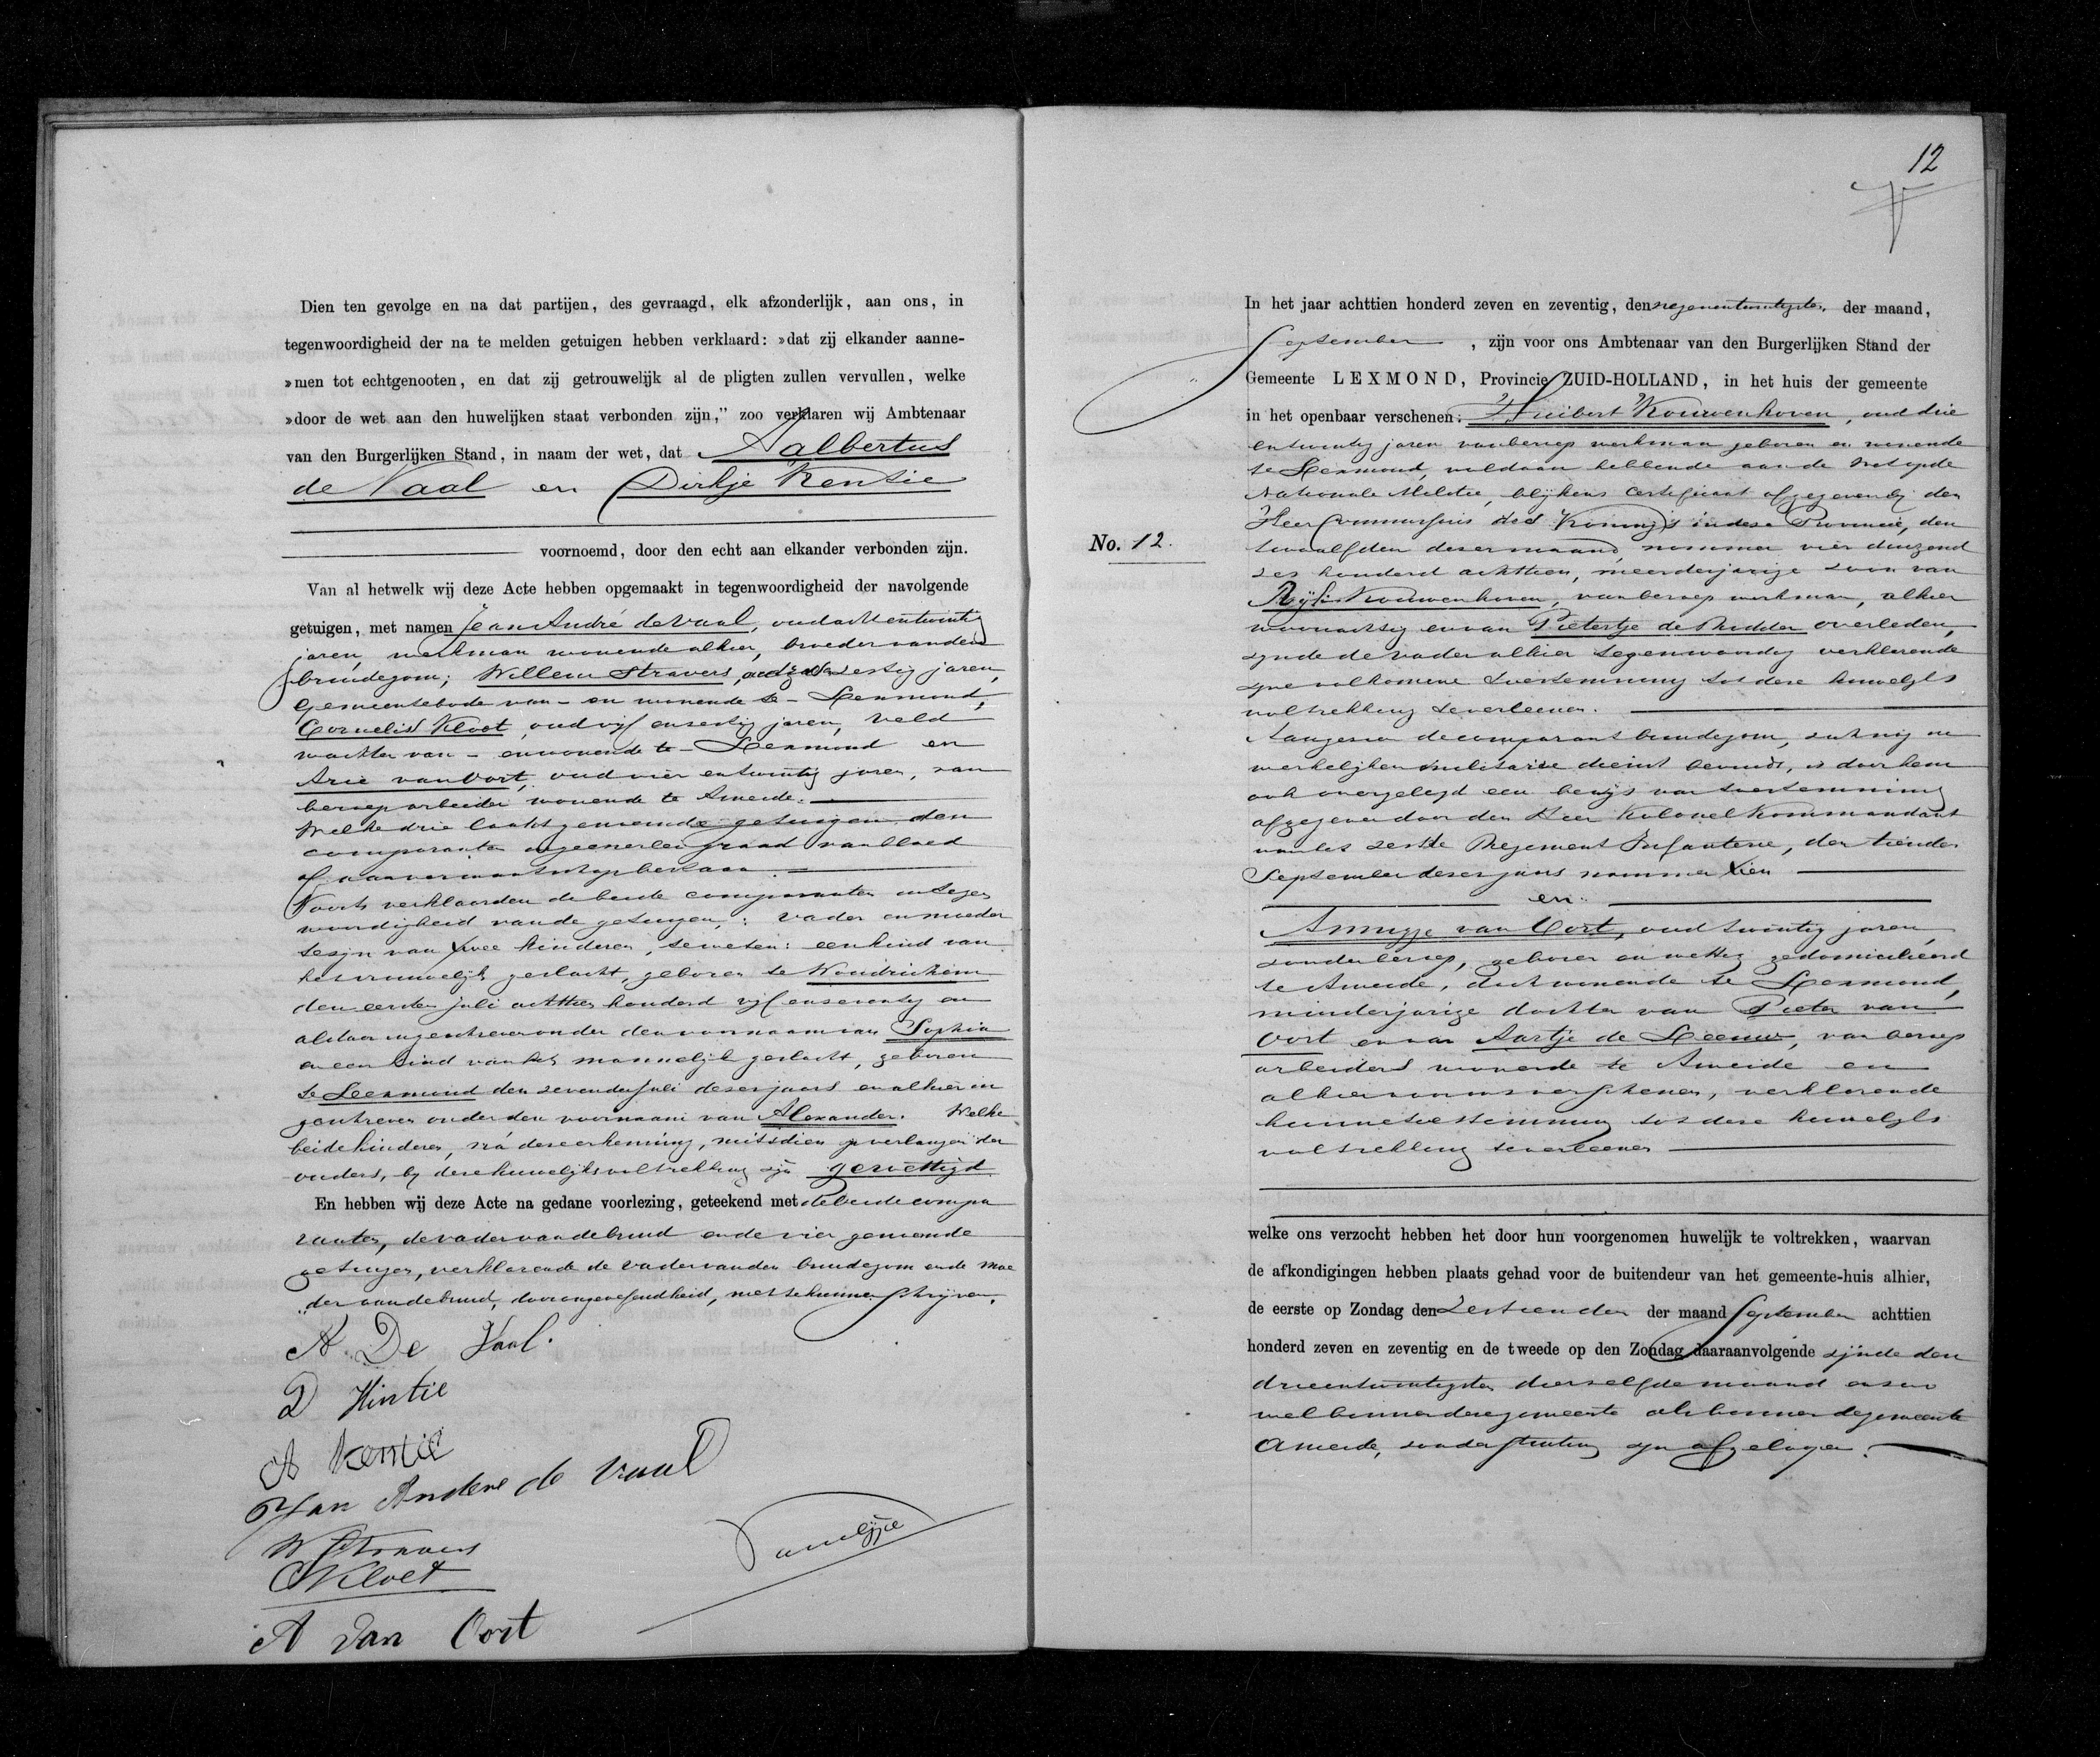 Dien ten gevolge en na dat partijen, des gevraagd, elk afzonderlijk, aan ons, in
tegenwoordigheid der na te melden getuigen hebben verklaard: »dat zij elkander aanne-
»men tot echtgenooten, en dat zij getrouwelijk al de pligten zullen vervullen, welke
»door de wet aan den huwelijken staat verbonden zijn," zoo verklaren wij Ambtenaar
van den Burgerlijken Stand, in naam der wet, dat Aalbertus
de Vaal en Dirkje Kentie
voornoemd, door den echt aan elkander verbonden zijn.
Van al hetwelk wij deze Acte hebben opgemaakt in tegenwoordigheid der navolgende
getuigen, met namen Jean André de Vaal, oud acht en twintig
jaren, werkman wonende alhier, broeder van den
bruidegom; Willem Stravers, oud zestig jaren,
gemeentebode van - en wonende te - Lexmond,
Cornelis Kloot, oud vijf en zestig jaren, veld
wachter van - en wonende te - Lexmond en
Arie van Oort, oud vier en twintig jaren, van
beroep arbeider wonende te Ameide.
Welke drie laatstgenoemde getuigen den
comparanten in geenerlei graad van bloed
of aanverwantschap bestaan.
Voorts verklaarden de beide comparanten in tegen
woordigheid van de getuigen, : vader en moeder
te zijn van twee kinderen, te weten: een kind van
het vrouwelijk geslacht, geboren te Woudrichem
den eersten juli achttien honderd vijf en zeventig en
aldaar ingeschreven onder den voornaam van Sophia
en een kind van het mannelijk geslacht, geboren
te Lexmond den zevenden Juli dezer jaars en alhier in
geschreven onder den voornaam van Alexander. Welke
beide kinderen, ná deze erkenning, mitsdien op verlangen der
ouders, bij deze huwelijksvoltrekking zijn gewettigd.
En hebben wij deze Acte na gedane voorlezing, geteekend met de beide compa
ranten, de vader van de bruid en de vier genoemde
getuigen, verklarende de vader van den bruidegom en de moe
der van de bruid, door ongeoefendheid, niet te kunnen schrijven.
A. De Vaal.
D Kintie
A Kentie
Jan Andere de Vaal
W Stravers
C Kloet
A van Oort
12
No. 12.
In het jaar achttien honderd zeven en zeventig, den negenentwintigsten der maand,
September, zijn voor ons Ambtenaar van den Burgerlijken Stand der
Gemeente LEXMOND, Provincie ZUID-HOLLAND, in het huis der gemeente
in het openbaar verschenen: Huibert Kouwenhoven, oud drie
en twintig jaren van beroep werkman geboren en wonende
te Lexmond, voldaan hebbende aan de wet op de
Nationale Militie, blijkens certificaat afgegeven bij den
Heer Commissaris des Konings in deze Provincie, den
twaalfden dezer maand, nommer vier duizend
zes honderd achttien, meerderjarige zoon van
Rijk Kouwenhoven, van beroep werkman, alhier
woonachtig en van Pietertje de Ridder overleden,
zijnde de vader alhier tegenwoordig verklarende
zijne volkomene toestemming tot deze huwelijks
voltrekking te verleenen.
Aangezien de comparant bruidegom, zich nog in
werkelijken militaire dienst bevindt, is door hem
ook overgelegd een bewijs van toestemming
afgegeven door den Heer Kolonel Kommandant
van het zesde Regement Infanterie, den tienden
September dezer jaars nommer tien
en:
Annigje van Oort, oud twintig jaren,
zonder beroep, geboren en wettig gedomicilieerd
te Ameide, doch wonende te Lexmond,
minderjarige dochter van Pieter van
Oort en van Aartje de Leeuw, van beroep
arbeiders wonende te Ameide en
alhier voor ons verschenen, verklarende
hunne toestemming tot deze huwelijks
voltrekking te verleenen
welke ons verzocht hebben het door hun voorgenomen huwelijk te voltrekken, waarvan
de afkondigingen hebben plaats gehad voor de buitendeur van het gemeente-huis alhier,
de eerste op Zondag den zestienden der maand September achttien
honderd zeven en zeventig en de tweede op den Zondag daaraanvolgende zijnde den
drieentwintigsten derzelfde maand en zoo
wel binnen deze gemeente als binnen de gemeente
Ameide, zonder stuiting zijn afgeloopen.